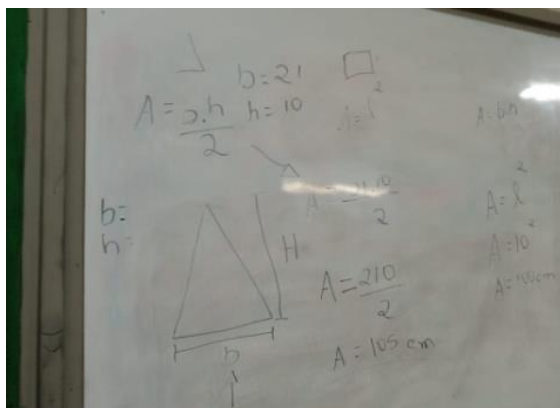 b=21
A=b.h/2
h=10
A=l²
A=b.h
b=
h=
H
b
A=21.10/2
A=210/2
A=105 cm
A=l²
A=10²
A=100cm